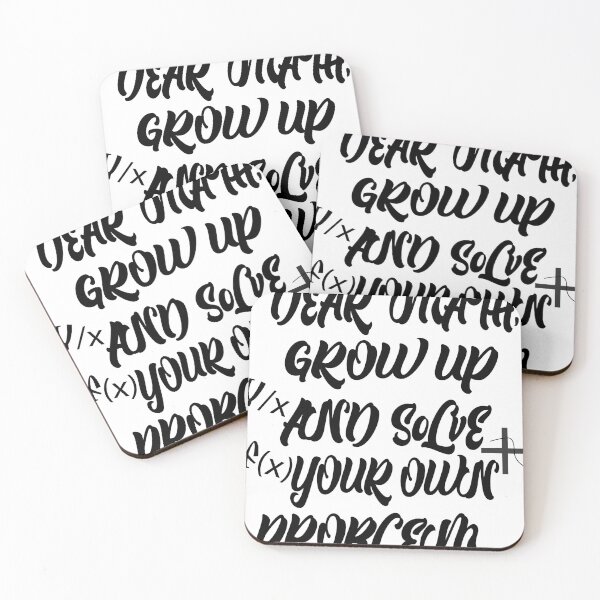 DEAR MATH,
GROW UP
/x AND SOLVE
DEAR MATH,
GROW UP
/x AND SOLVE
f(x) YOUR OWN
DEAR MATH,
GROW UP
/x AND SOLVE
f(x) YOUR OWN
PROBLEM
DEAR MATH,
GROW UP
/x AND SOLVE
f(x) YOUR OWN
PROBLEM